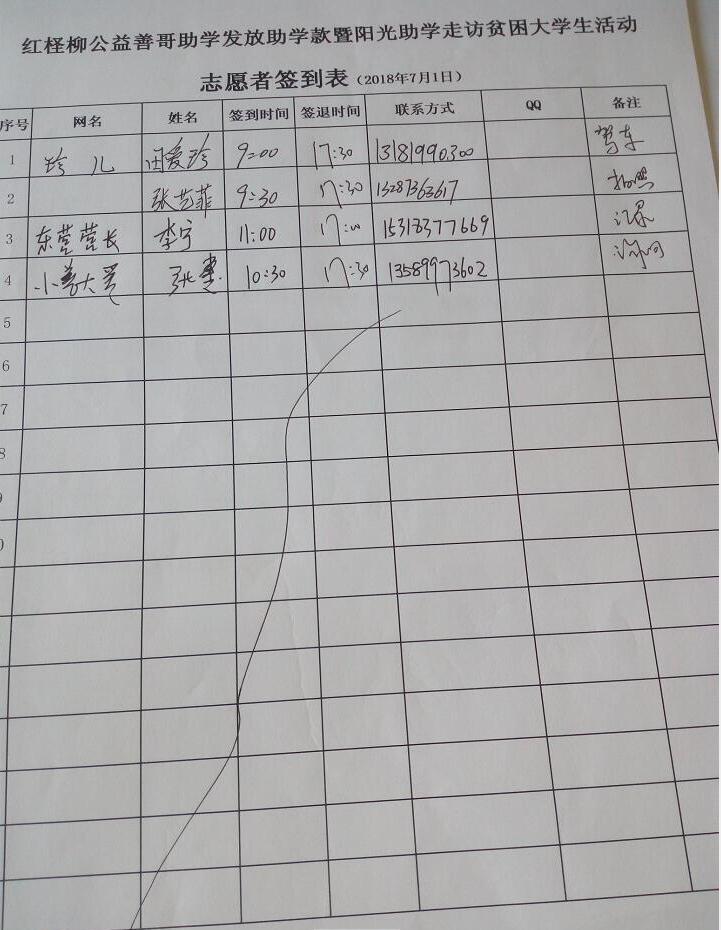 红柽柳公益善哥助学发放助学款暨阳光助学走访贫困大学生活动
志愿者签到表（2018年7月1日）
序号 网名 姓名 签到时间 签退时间 联系方式 QQ 备注
1 珍儿 田爱珍 9:00 17:30 13181990300 驾车
2 张艺菲 9:30 17:30 13287363617 拍照
3 东营营长 李宁 11:00 17:00 15318377669 记录
4 小善大爱 张 10:30 17:30 13589973602
5
6
7
8
9
0